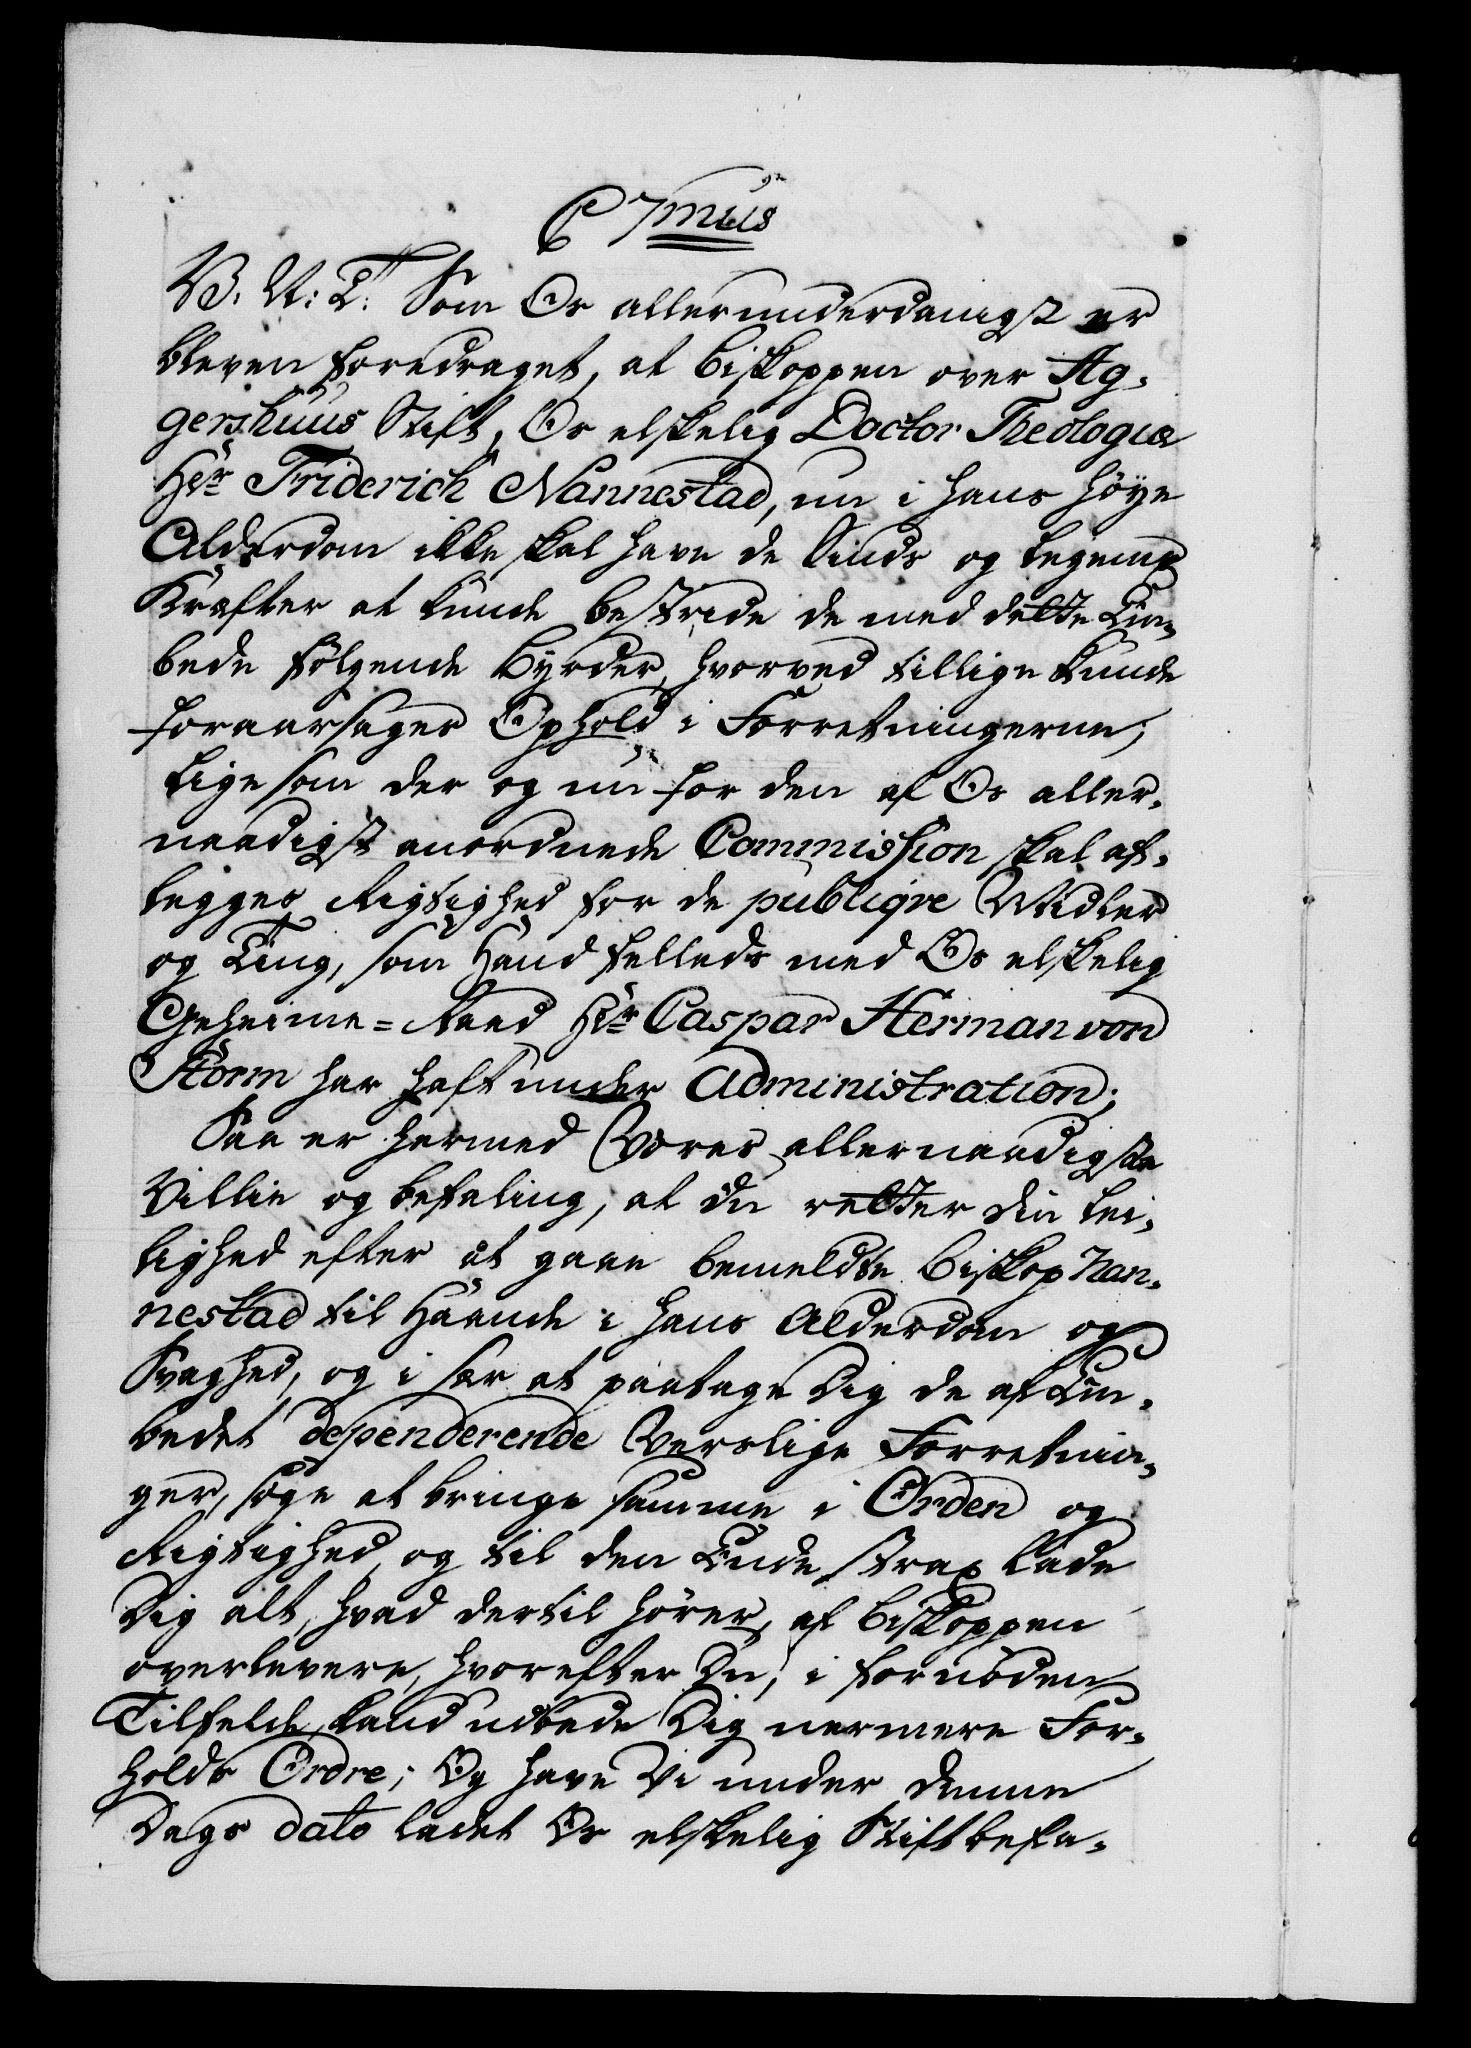 C 7mus
V. A: T. Som Os allerunderdanigst er
bleven foredraget, at Biskoppen over Ag-
gershuus Stift, Os elskelig Doctor Theologiæ
Hr Friderich Nannestad, nu i hans høye
Alderdom ikke skal have de Sinds og Legems
Kræfter at kunde bestride de med dette Em-
bede følgende Byrder, hvorved tillige kunde
foraarsages Ophold i Forretningerne,
ligesom der og nu for den af Os aller-
naadigst anordnede Commission skal af-
legges Rigtighed for de publiqve Midler
og Ting, som Hand fælleds med Os elskelig
Geheime-Raad Hr Caspar Herman von
Storm har haft under Administration;
Saa er hermed Vores allernaadigste
Villie og befaling, at Du retter din Lei-
lighed efter at gaae bemeldte Biskop Nan-
nestad til Haande i hans Alderdom og
Svaghed, og i sær at paatage Dig de af Em-
bedet dependerende Verslige Forretnin-
ger, søge at bringe samme i Orden og
Rigtighed, og til den Ende strax lade
Dig alt, hvad dertil hører, af Biskoppen
overlevere, hvorefter Du, i fornøden
Tilfelde, kand udbede Dig nermere For-
holds Ordre; Og have Vi under denne
Dags dato ladet Os elskelig Stiftbefa-